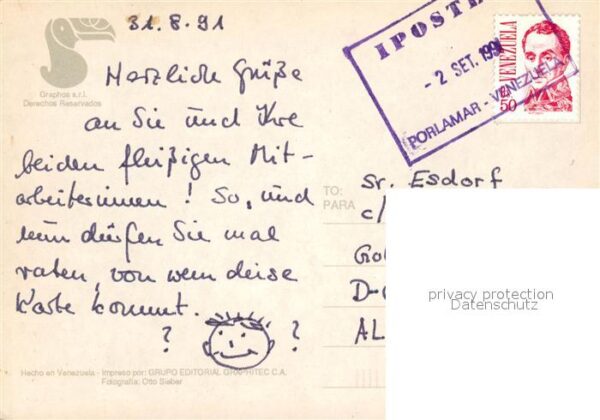 31.8.91
Graphos s.r.l.
Derechos Reservados
Herzliche Grüße
an Sie und Ihre
beiden fleißigen Mit-
arbeiterinnen! So, und
nun dürfen Sie mal
raten, von wem diese
Karte kommt.
? ?
Hecho en Venezuela - Impreso por: GRUPO EDITORIAL GRAPHITEC C.A.
Fotografía: Otto Sieber
IPOSTEL
- 2 SET. 1991
PORLAMAR - VENEZUELA
VENEZUELA
50
TO:
PARA
Sr. Esdorf
c/
D-
AL
privacy protection
Datenschutz